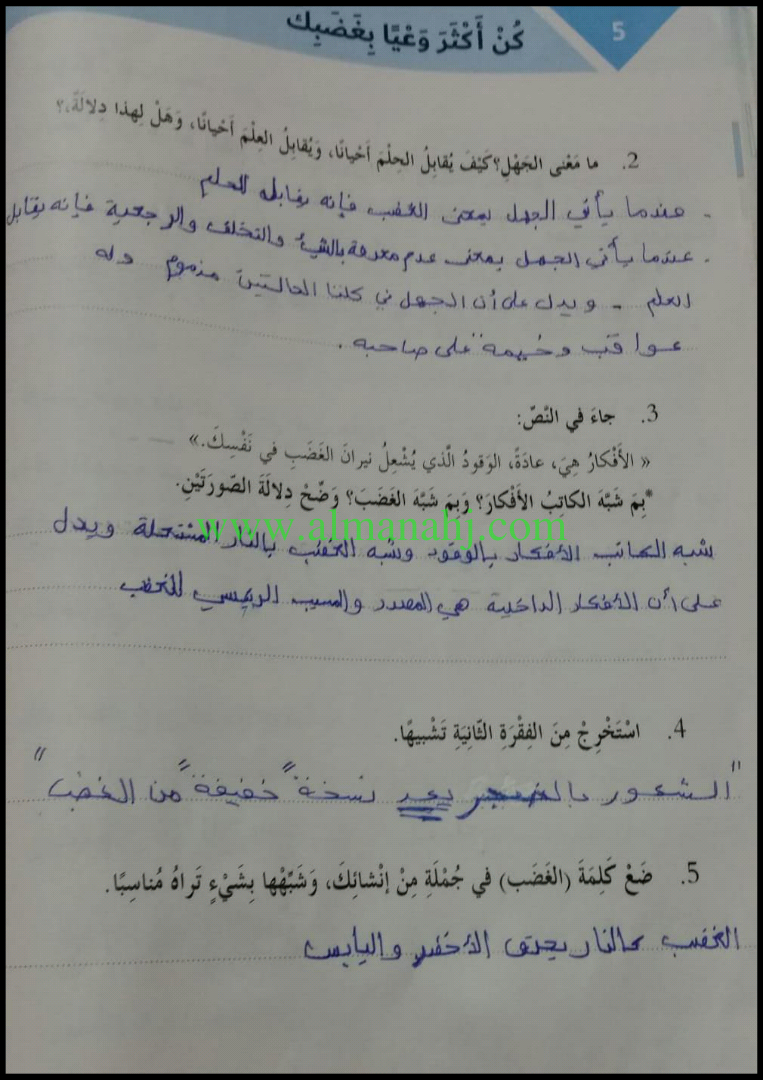 5
كُنْ أَكْثَرَ وَعْيًا بِغَضَبِكَ
2. ما مَعْنى الجَهْلِ؟ كَيْفَ يُقابِلُ الحِلْمَ أَحْيانًا، وَيُقابِلُ العِلْمَ أَحْيانًا، وَهَلْ لِهذا دِلالَةٌ؟
- عندما يأتي الجهل بمعنى الغضب فإنه يقابله الحلم
- عندما يأتي الجهل بمعنى عدم معرفة بالشيء والتخلف والرجعية فإنه يقابل
العلم - ويدل على أن الجهل في كلتا الحالتين مذموم وله
عواقب وخيمة على صاحبه.
3. جاءَ في النّصّ:
« الأَفْكارُ هِيَ، عادَةً، الوَقودُ الَّذي يُشْعِلُ نيرانَ الغَضَبِ في نَفْسِكَ.»
*بِمَ شَبَّهَ الكاتِبُ الأَفْكارَ؟ وَبِمَ شَبَّهَ الغَضَبَ؟ وَضِّحْ دِلالَةَ الصّورَتَيْنِ.
www.almanahj.com
شبه الكاتب الأفكار بالوقود وشبه الغضب بالنار المشتعلة ويدل
على أن الأفكار الداخلية هي المصدر والمسبب الرئيسي للغضب
4. اسْتَخْرِجْ مِنَ الفِقْرَةِ الثّانِيَةِ تَشْبيهًا.
"الشعور بالضجر يعد نسخة "خفيفة" من الغضب"
5. ضَعْ كَلِمَةَ (الغَضَب) في جُمْلَةٍ مِنْ إنْشائِكَ، وَشَبِّهْها بِشَيْءٍ تَراهُ مُناسِبًا.
الغضب كالنار يحرق الأخضر واليابس